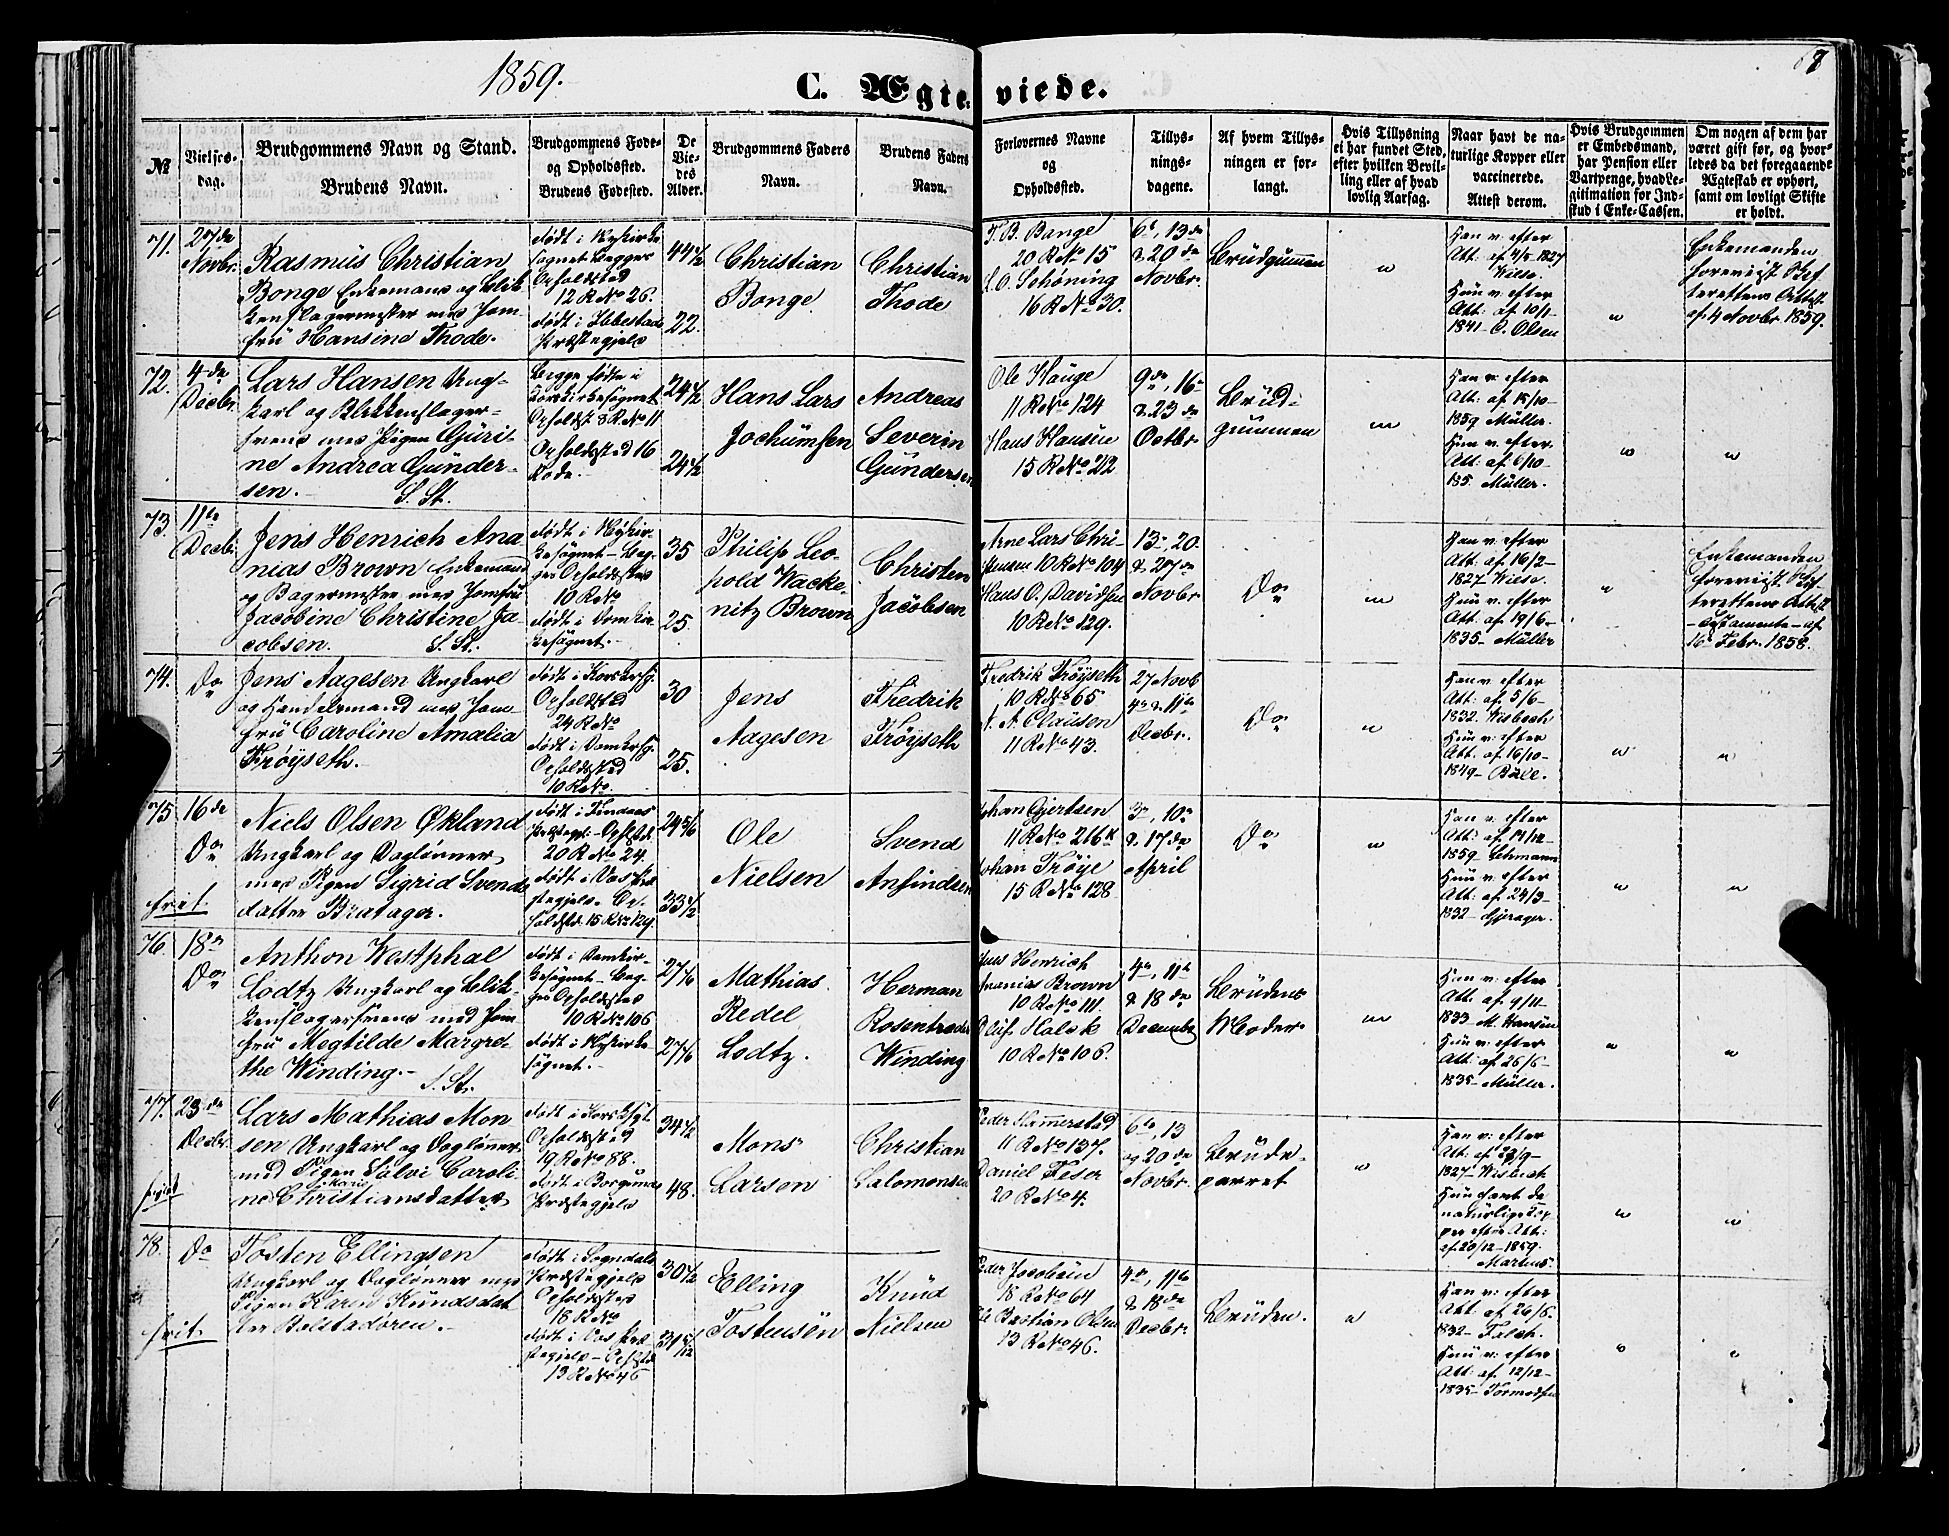 1859.
C. Ægte viede.
67
No
Vielses-
dag.
Brudgommens Navn og Stand.
Brudens Navn.
Brudgommens Føde-
og Opholdssted.
Brudens Fødested.
De
Vie-
des
Alder.
Brudgommens Faders
Navn.
Brudens Faders
Navn.
Forlovernes Navne
og
Opholdssted.
Tillys-
nings-
dagene.
Af hvem Tillys-
ningen er for-
langt.
Hvis Tillysning
ei har fundet Sted,
efter hvilken Bevil-
ling eller af hvad
lovlig Aarsag.
Naar havt de na-
turlige Kopper eller
vaccinerede.
Attest derom.
Hvis Brudgommen
er Embedsmand,
har Pension eller
Vartpenge, hvad Le-
gitimation for Ind-
skud i Enke-Cassen.
Om nogen af dem har
været gift før, og hvor-
ledes da det foregaaende
Ægteskab er ophørt,
samt om lovligt Skifte
er holdt.
71.
27de
Novbr.
Rasmus Christian
Bonge Enkemand og Blik-
kenslagermester med Jom-
fru Hansine Thode.
født i Nykirke
sognet Begges
Opholdsted
12 R No 26.
født i Ibbestad
Præstegjeld
44 1/2
22.
Christian
Bonge
Christian
Thode
T. B. Bange
20 R No 15
L. O. Schøning
16 R No 30.
6te, 13de
& 20de
Novbr.
Brudgummen
"
Han v. efter
Att: af 4/5 1827
Wiese.
Hun v. efter
Att: af 10/1-
1841- C. Olsen
"
Enkemanden
forevist Skif
terettens Attest
af 4 Novbr. 1859.
72.
4de
Decbr.
Lars Hansen Ung-
karl og Blikkenslager-
svend med Pigen Guri-
ne Andrea Gunder-
sen.- S. St.
Begge fødte i
Korskirkesognet
Opholdst 8 R No 11
Opholdsted 16
Rode.
24 1/2
24 1/2
Hans Lars
Jochumsen
Andreas
Severin
Gundersen
Ole Hauge
11 R No 124
Hans Hansen
15 R No 212
9de, 16de
& 23de
Octbr.
Brud-
gummen
"
Han v. efter
Att: af 15/10-
1859 Müller.
Hun v. efter
Att: af 6/10-
185 Müller.
"
"
73.
11te
Decbr.
Jens Henrich Ana
nias Brown Enkemand
og Bagermester med Jomfru
Jacobine Christine Ja-
cobsen. S. St.
født i Nykir-
kesognet- Beg-
ges Opholdsted
10 R No
født i Domkir-
kesognet.-
35
25.
Philip Leo-
pold Wacke-
nitz Brown
Christen
Jacobsen
Arne Lars Chri-
stensen 10 R No 104
Hans O. Davidsen
10 R No 129.
13de, 20
& 27de
Novbr
Do
"
Han v. efter
Att. af 16/2-
1827- Wiese.
Hun v. efter
Att. af 19/6-
1835- Müller
"
Enkemanden
forevist Skif
terettens Attest
- Testamente- af
16 Febr. 1858.
74.
Do
Jens Aagesen Ungkarl
og Handelsmand med Jom-
fru Caroline Amalia
Frøyseth.-
født i Korskirksg.
Opholdsted
24 R No
født i Domkirksg.
Opholdsted
10 R No
30
25.
Jens
Aagesen
Fredrik
Frøyseth
Fredrik Frøyseth
10 R No 65
N. A. Clausen
11 R No 43.
27 Novb
4de & 11te
Decbr.
Do
"
Han v. efter
Att: af 5/6-
1832. Wisbech
Hun v. efter
Att: af 16/10-
1849- Bull.
"
"
75
16de
Do
frit.
Niels Olsen Økland
Ungkarl og Dagløner
med Pigen Sigrid Svends
datter Bratager.
født i Findaas
Præstegj.- Opholdst.
20 R No 24.
født i Vos Præ
stegjeld. Op-
holdsted. 15 R No 129.
24 5/6
33 1/2
Ole
Nielsen
Svend
Anfindsen
Johan Gjertsen
11 R No 216
Johan Frøye
15 R No 128
3de, 10de
& 17de
April
Do
"
Han v. efter
Att: af 14/12-
1859- Lehmann
Hun v. efter
Att: af 24/3-
1832- Gjerager.
"
"
76.
18de
Do
Anthon Westphal
Lodtz Ungkarl og Blik-
kenslagersvend med Jom
fru Megtilde Margre-
the Winding.- S. St.
født i Domkir-
kesognet- Beg-
ges Opholdsted
10 R No 106
født i Nykirke
sognet.-
27 1/6
27 1/6
Mathias
Redel
Lodtz.
Herman
Rosentreder
Winding
Jens Henrich
Ananias Brown
10 R No 111.
Oluf Halck
10 R No 106.
4de, 11te
& 18de
Decembr
Brudens
Moder
"
Han v. efter
Att. af 9/11-
1833- M. Hansen
Hun v. efter
Att: af 26/6-
1835- Müller.
"
"
77.
23de
Decbr.
Lars Mathias Mon
sen Ungkarl og Dagløner
med Pigen Sølvi Caroli
ne Christiansdatter
født i Korsksg.
Opholdsted
19 R No 88.
født i Borgunds
Præstegjeld
34 1/2
48.
Mons
Larsen
Christian
Salomonsen
Peder Hammerstad
11 R No 137.
Daniel Feser
20 R No 4.
6te, 13
og 20de
Novbr.
Brude-
parret
"
Han v: efter
Att: af 22/9-
1827- Wisbech
Hun havt de
naturlige Kop
per efter Att:
af 20/12-1859.
Martens
"
"
78.
Do
frit.
Tosten Ellingsen
Ungkarl og Dagløner med
Pigen Karen Knudsdat
ter Bolstadøren.-
født i Sogndals
Præstegjeld
Opholdsted
18 R No
født i Vos Præ
stegjeld- Opholdst
13 R No 46
30 1/2
31 5/12
Elling
Tostensen
Knud
Nielsen
Peder Jacobsen
18 R No 64
Ole Bastian Olsen
13 R No 46.
4de, 11te
& 18de
Decbr.
Bruden.
"
Han v: efter
Att: af 26/6.
1832- Falch.
Hun v: efter
Att: af 12/12-
1835- Tormodsen
"
"